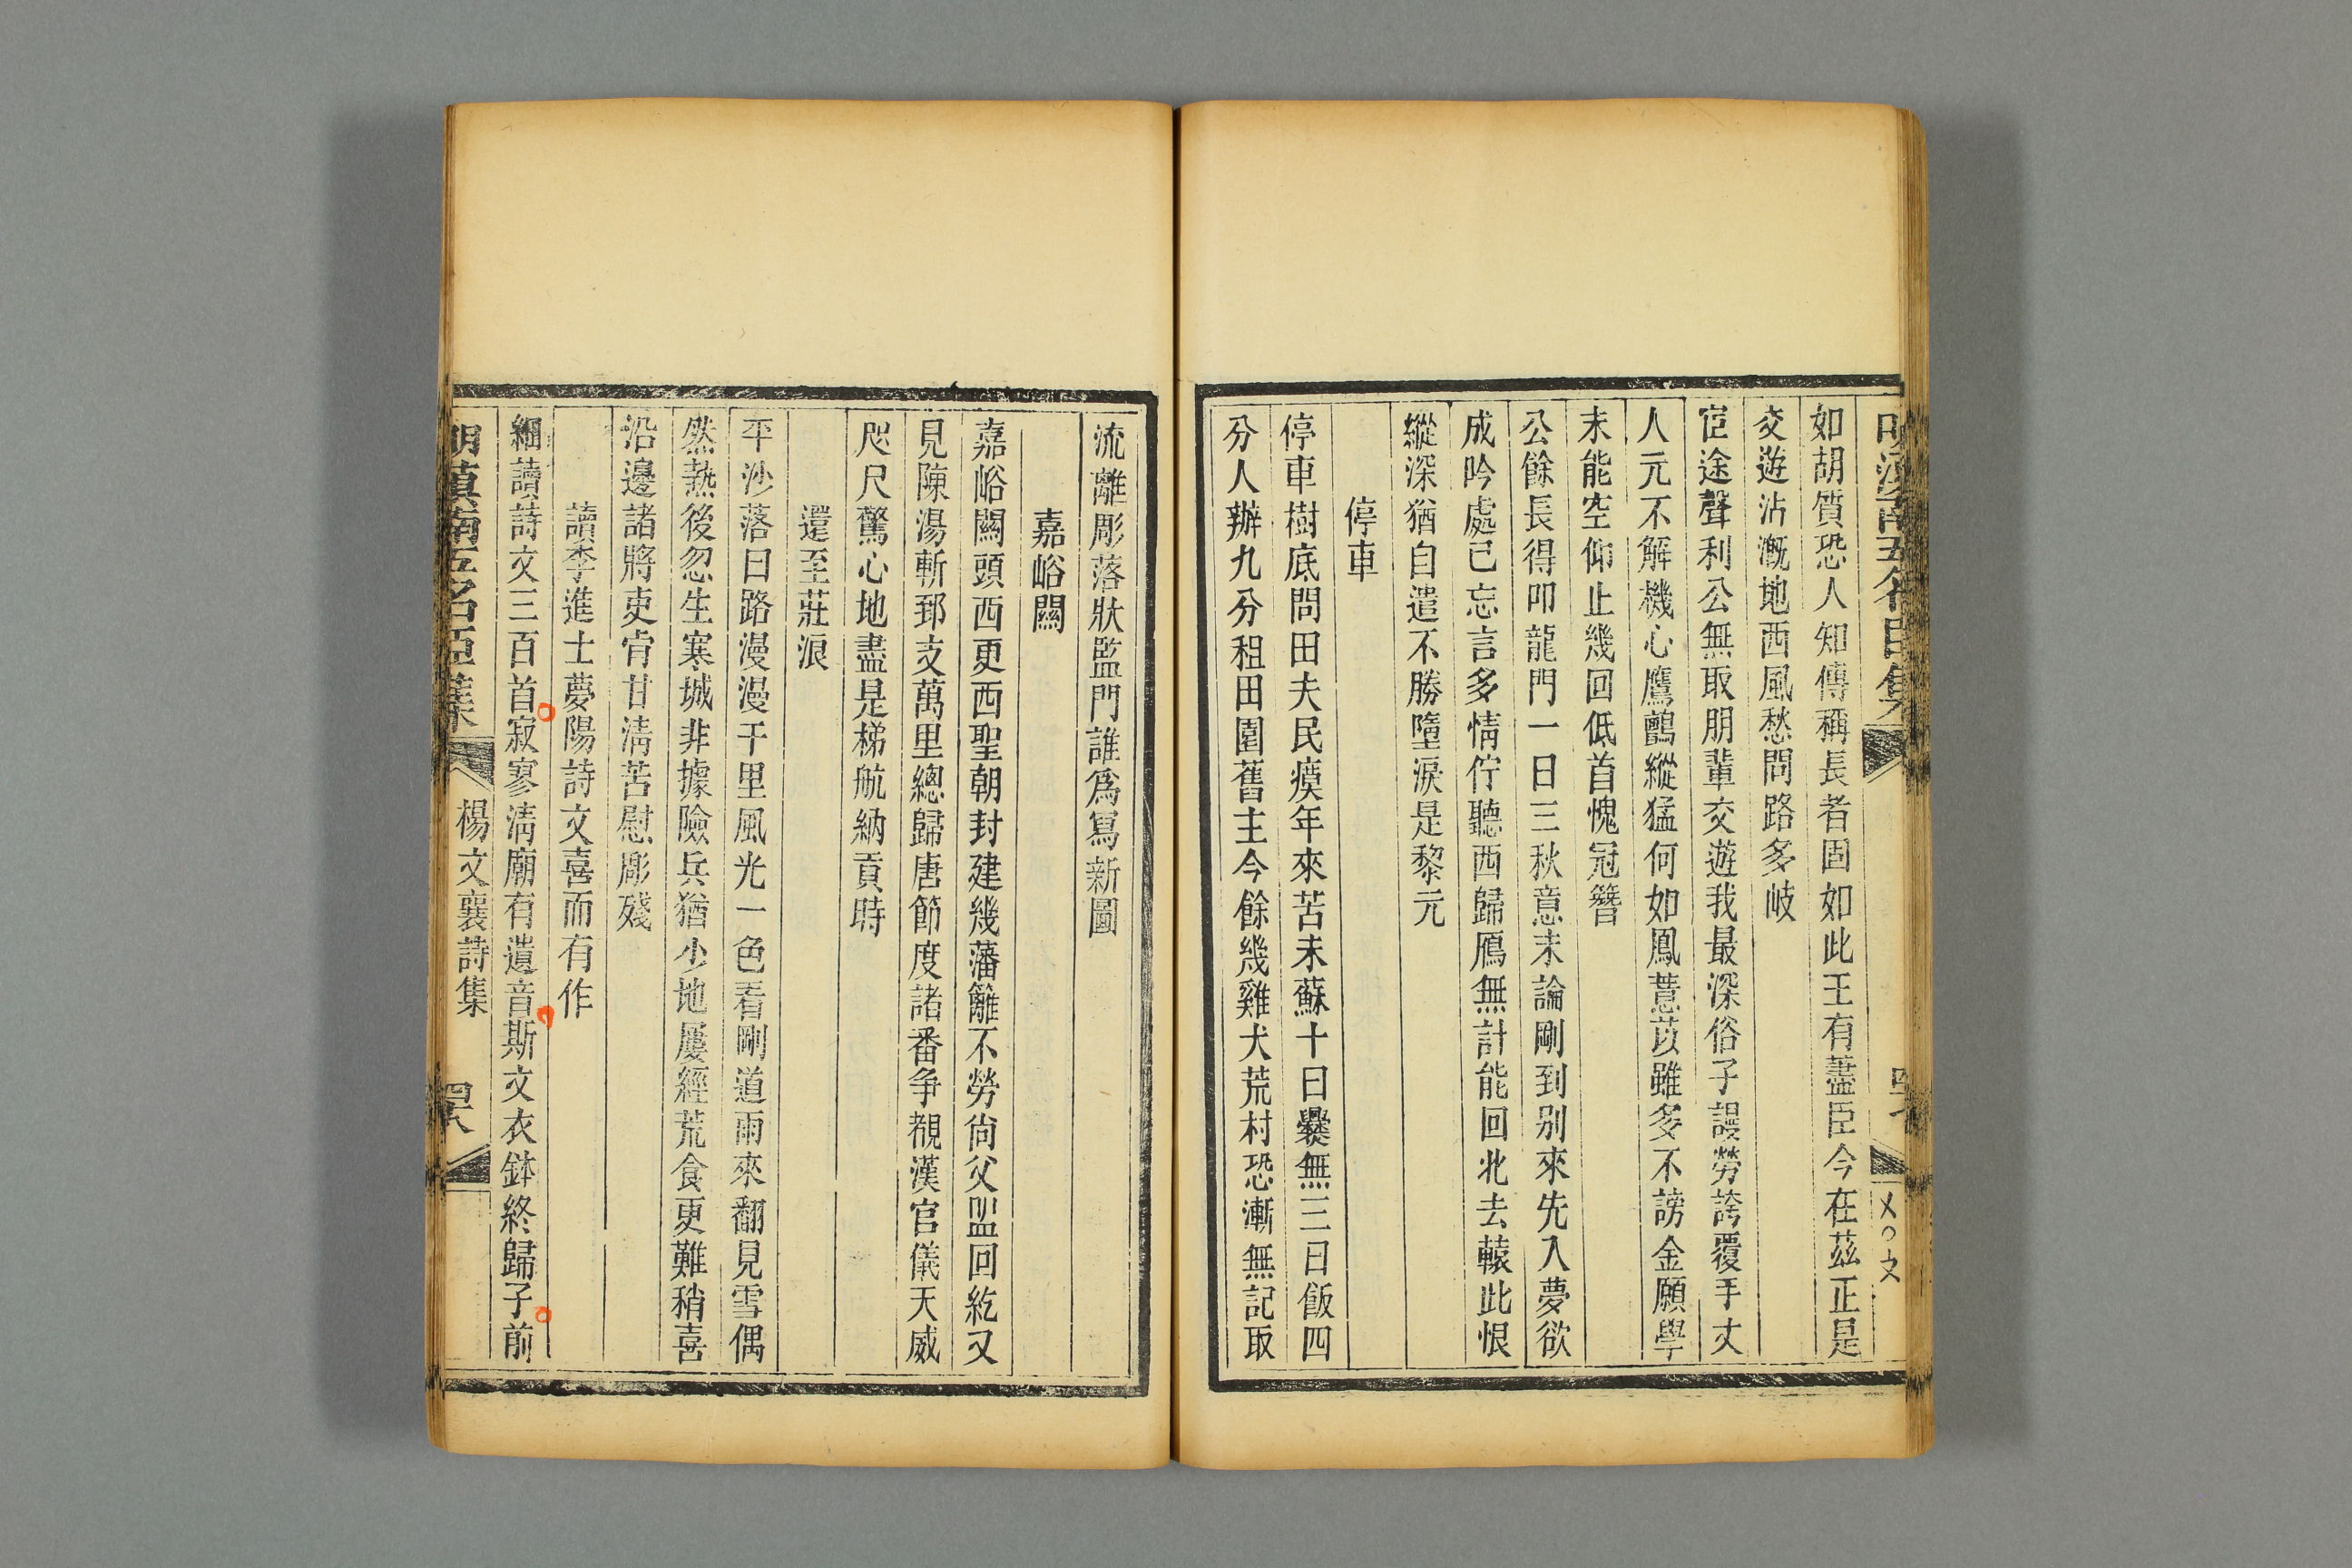 如胡質恐人知傳稱長者固如此王有藎臣今在茲正是
交遊沾溉地西風愁問路多岐
宦途聲利公無取朋輩交遊我最深俗子謾勞誇覆手丈
人元不解機心鷹鸇縱猛何如鳳薏苡雖多不謗金願學
未能空仰止幾回低首愧冠簪
公餘長得叩龍門一日三秋意未論剛到別來先入夢欲
成吟處已忘言多情佇聽西歸鴈無計能回北去轅此恨
縱深猶自遣不勝墮淚是黎元
停車
停車樹底問田夫民瘼年來苦未蘇十日爨無三日飯四
分人辦九分租田園舊主今餘幾雞犬荒村恐漸無記取
流離彫落狀監門誰爲寫新圖
嘉峪關
嘉峪關頭西更西聖朝封建幾藩籬不勞尙父盟回紇又
見陳湯斬郅支萬里總歸唐節度諸番争覩漢官儀天威
咫尺驚心地盡是梯航納貢時
還至莊浪
平沙落日路漫漫千里風光一色看剛道雨來翻見雪偶
然熱後忽生寒城非據險兵猶少地屢經荒食更難稍喜
沿邊諸將吏肯甘淸苦慰彫殘
讀李進士夢陽詩文喜而有作
細讀詩文三百首寂寥淸廟有遺音斯文衣鉢終歸子前
明滇南五名臣集
楊文襄詩集